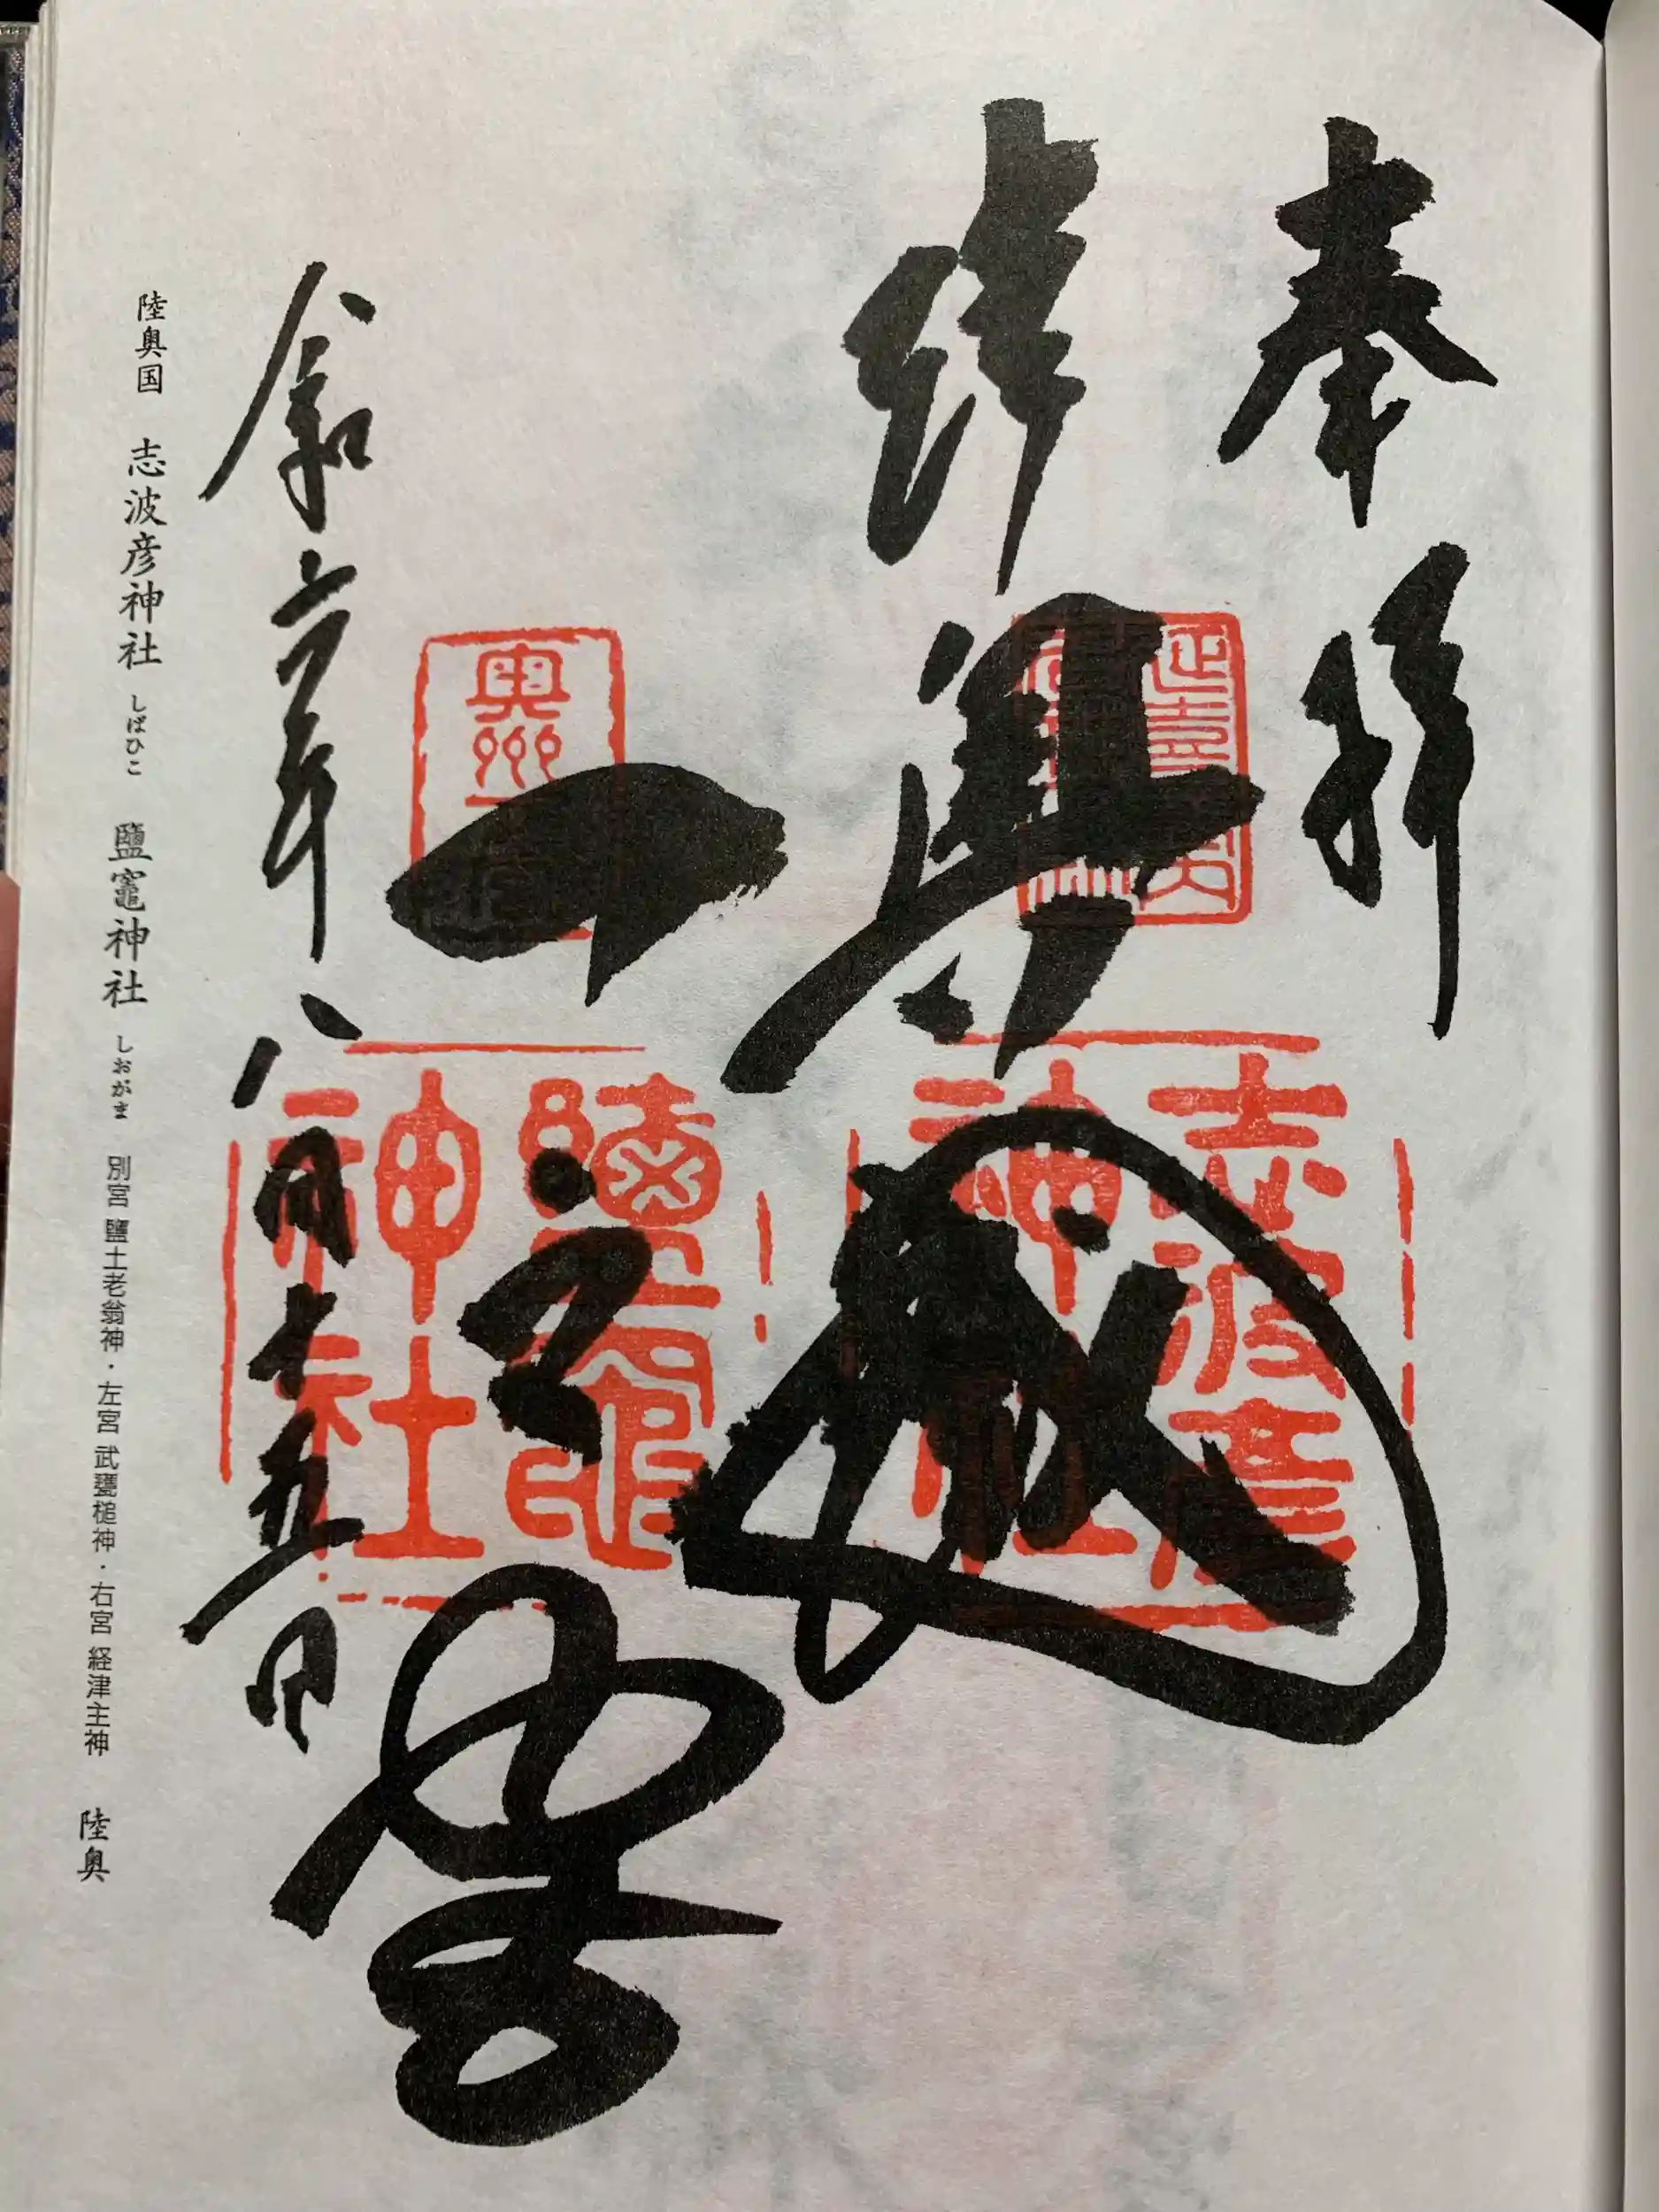 奉拝
陸奥國
一之宮
令和六年八月十五日
奥州一宮
志波彦神社
鹽竈神社
陸奥国 志波彦神社 しばひこ 鹽竈神社 しおがま 別宮 鹽土老翁神・左宮 武甕槌神・右宮 経津主神 陸奥